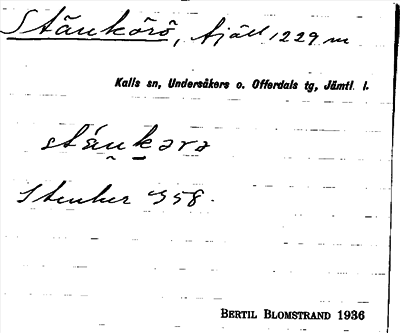 Stäukörö, fjäll 1229 m
Kalls sn, Undersåkers o. Offerdals tg, Jämtl. l.
stáu̯k̠ərə
Stenker 958.
BERTIL BLOMSTRAND 1936